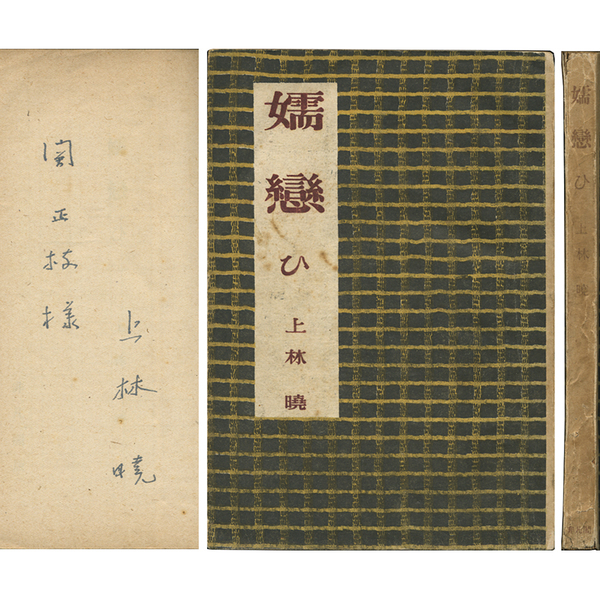 上林暁
関正枝様
嬬戀ひ
上林曉
嬬戀ひ
上林曉